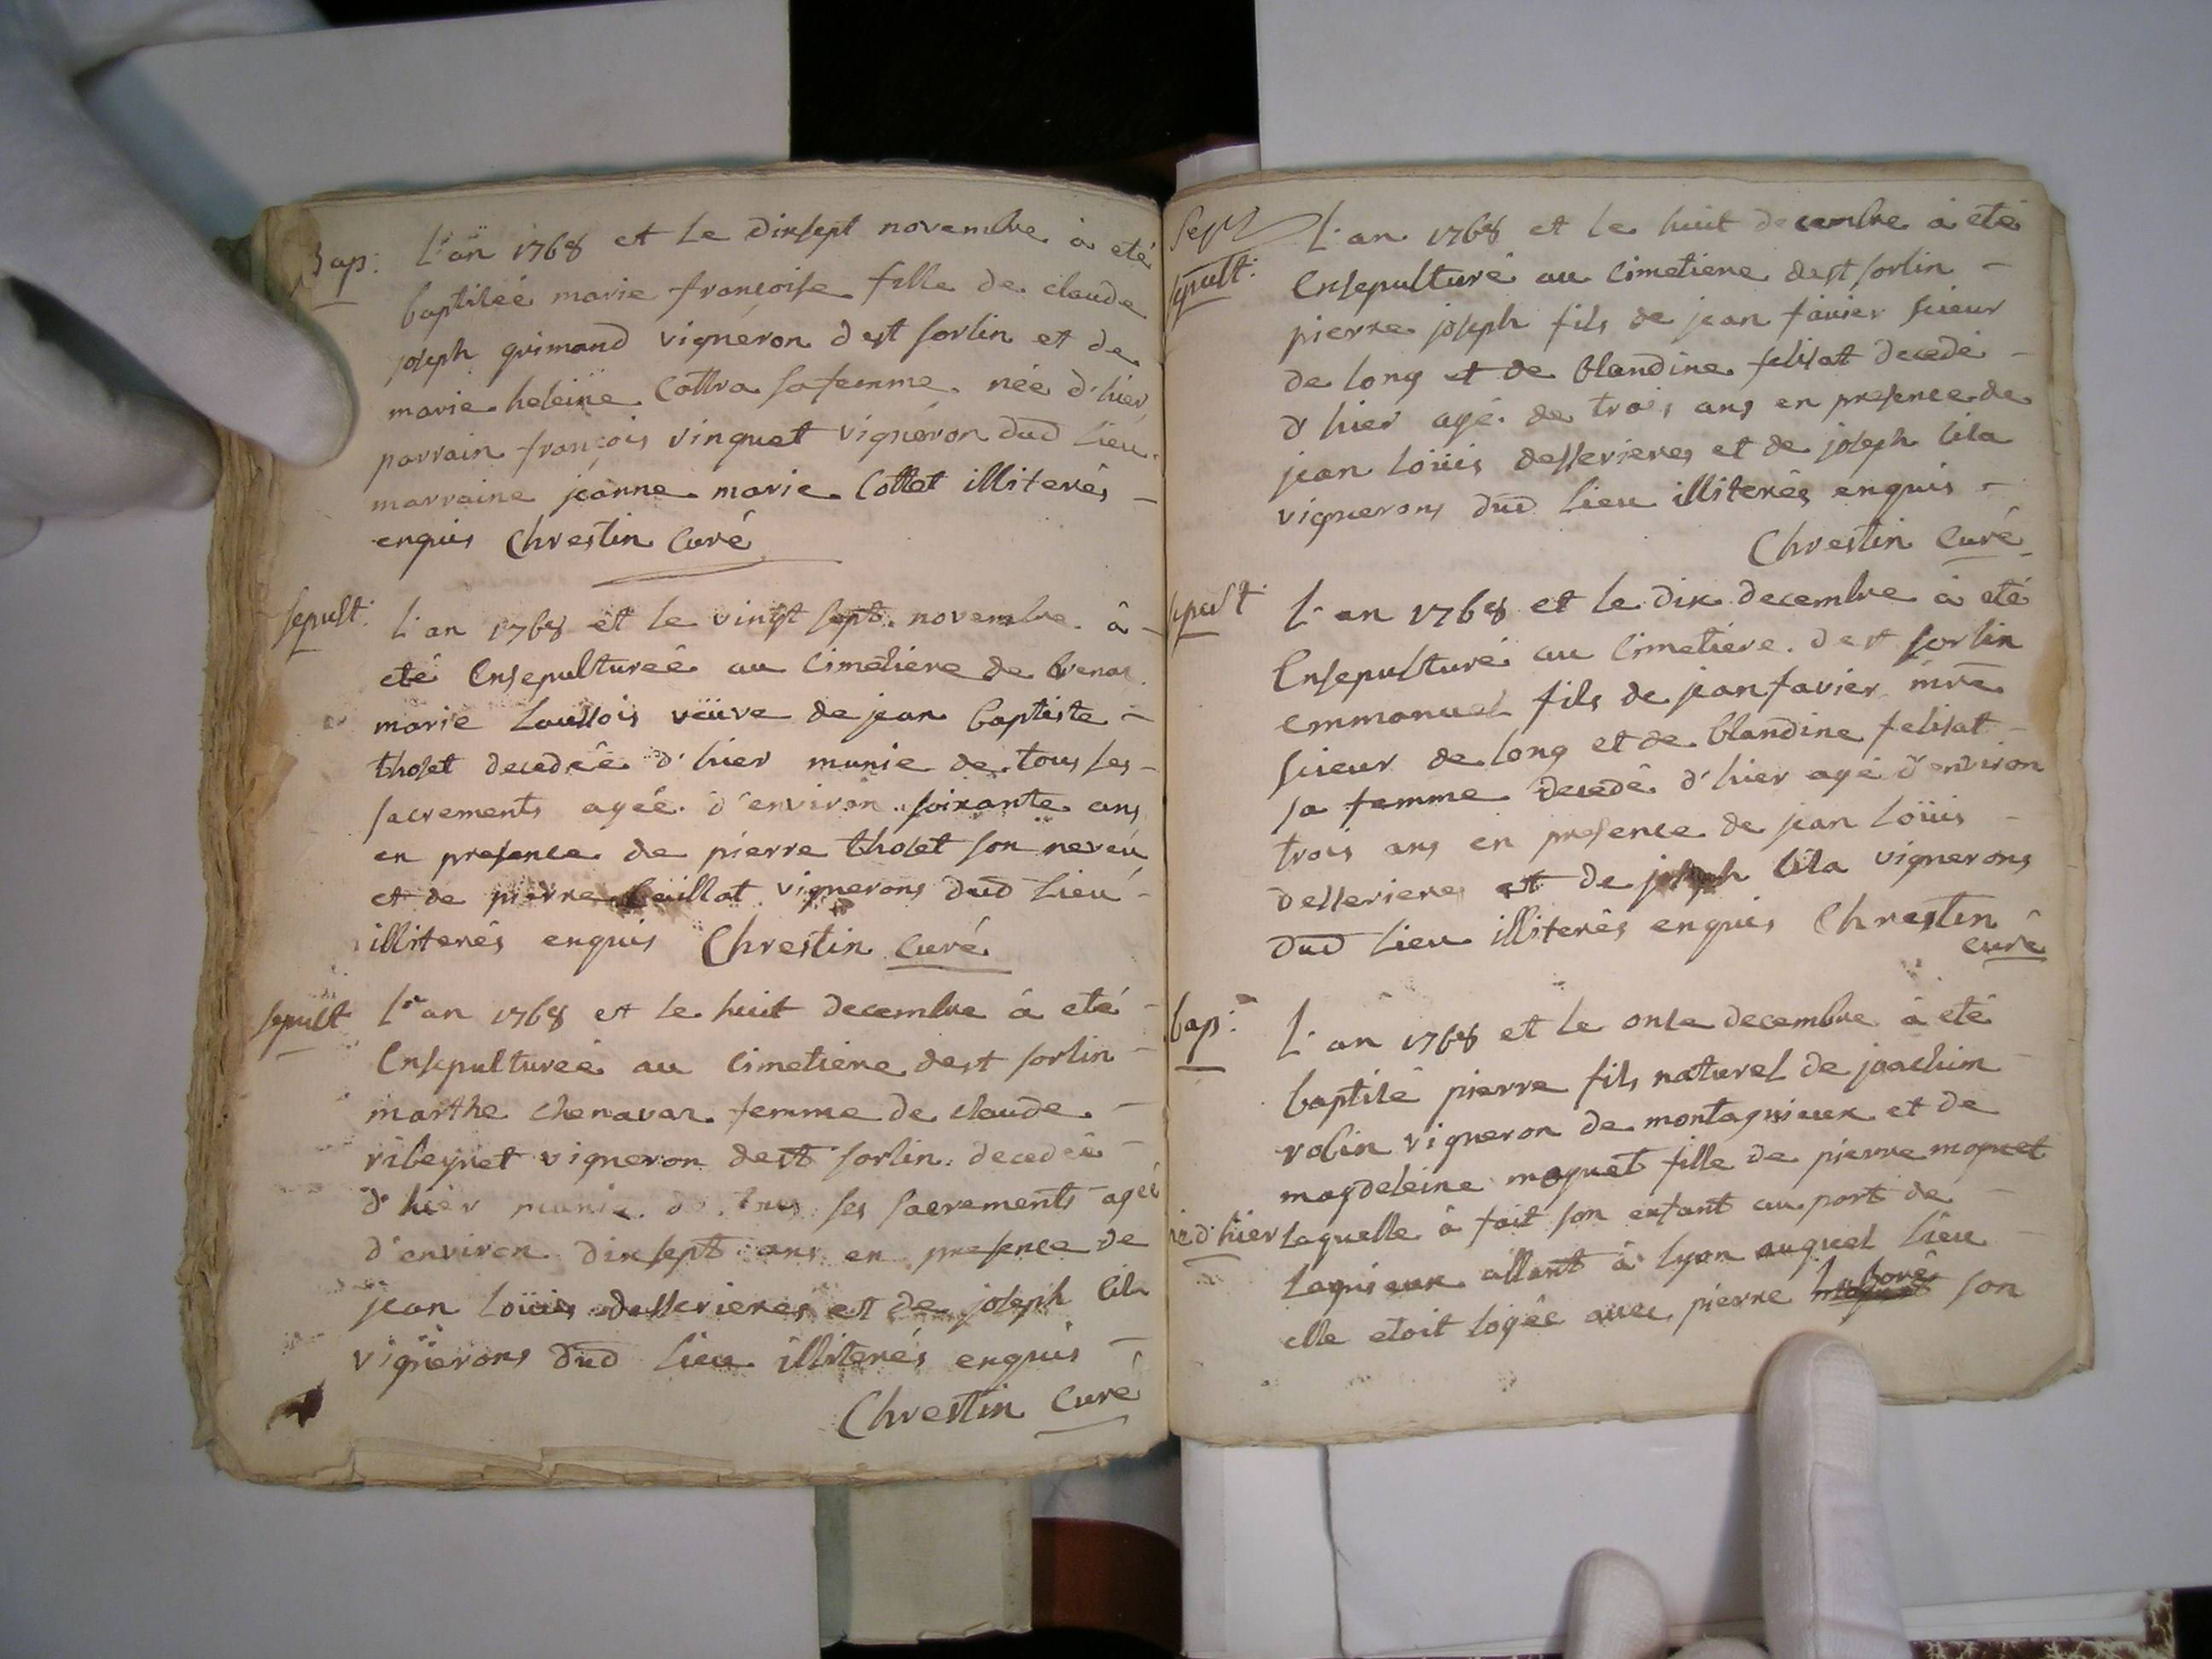 Bap: L'an 1768 et le dixsept novembre à eté
baptisée marie françoise fille de claude
joseph grimand vigneron dest sorlin et de
marie heleine Cottra sa femme née d'hier
parrain françois vinquet vigneron dud lieu
marraine jeanne marie Collet illiterés
enquis Chrestin Curé
sepult: L'an 1768 et le vingt sept novembre à
eté Ensepulturée au Cimetiere de
marie veüve de jean baptiste
tholet decedée d'hier munie de tous ses
sacrements agée d'environ soixante ans
en presence de pierre tholet son neveu
et de pierre vignerons dud lieu
illiterés enquis Chrestin Curé
sepult L'an 1768 et le huit decembre à eté
Ensepulturée au Cimetiere dest sorlin
marthe chenavar femme de claude
ribeyret vigneron dest sorlin decedée
d'hier munie de tous ses sacrements agée
d'environ dixsept ans en presence de
jean loüis desserieres et de joseph lila
vignerons dud lieu illiterés enquis
Chrestin Curé
Sept L'an 1768 et le huit decembre à eté
sepult: Ensepulturé au Cimetiere dest sorlin
pierre joseph fils de jean favier scieur
de long et de blandine felisat decedé
d'hier agé de trois ans en presence de
jean loüis desserieres et de joseph lila
vignerons dud lieu illiterés enquis
Chrestin Curé
sepult L'an 1768 et le dix decembre à eté
Ensepulturé au Cimetiere dest sorlin
emmanuel fils de jean favier mre
scieur de long et de blandine felisat
sa femme decedé d'hier agé d'environ
trois ans en presence de jean loüis
desserieres et de joseph lila vignerons
dud lieu illiterés enquis Chrestin
curé
bap: L'an 1768 et le onse decembre à eté
baptisé pierre fils naturel de joachim
robin vigneron de montagnieux et de
magdeleine moquet fille de pierre moquet
né d'hier laquelle à fait son enfant au port de
lagnieux allant à lyon auquel lieu
elle etoit logée avec pierre son